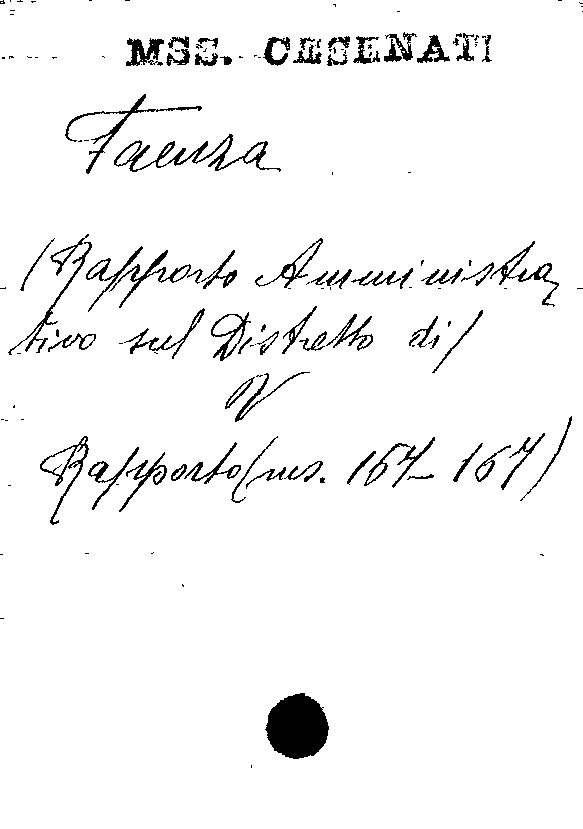 MSS. CESENATI
Faenza
(Rapporto Amministra
tivo sul Distretto di)
V
Rapporto (ms. 167-167)